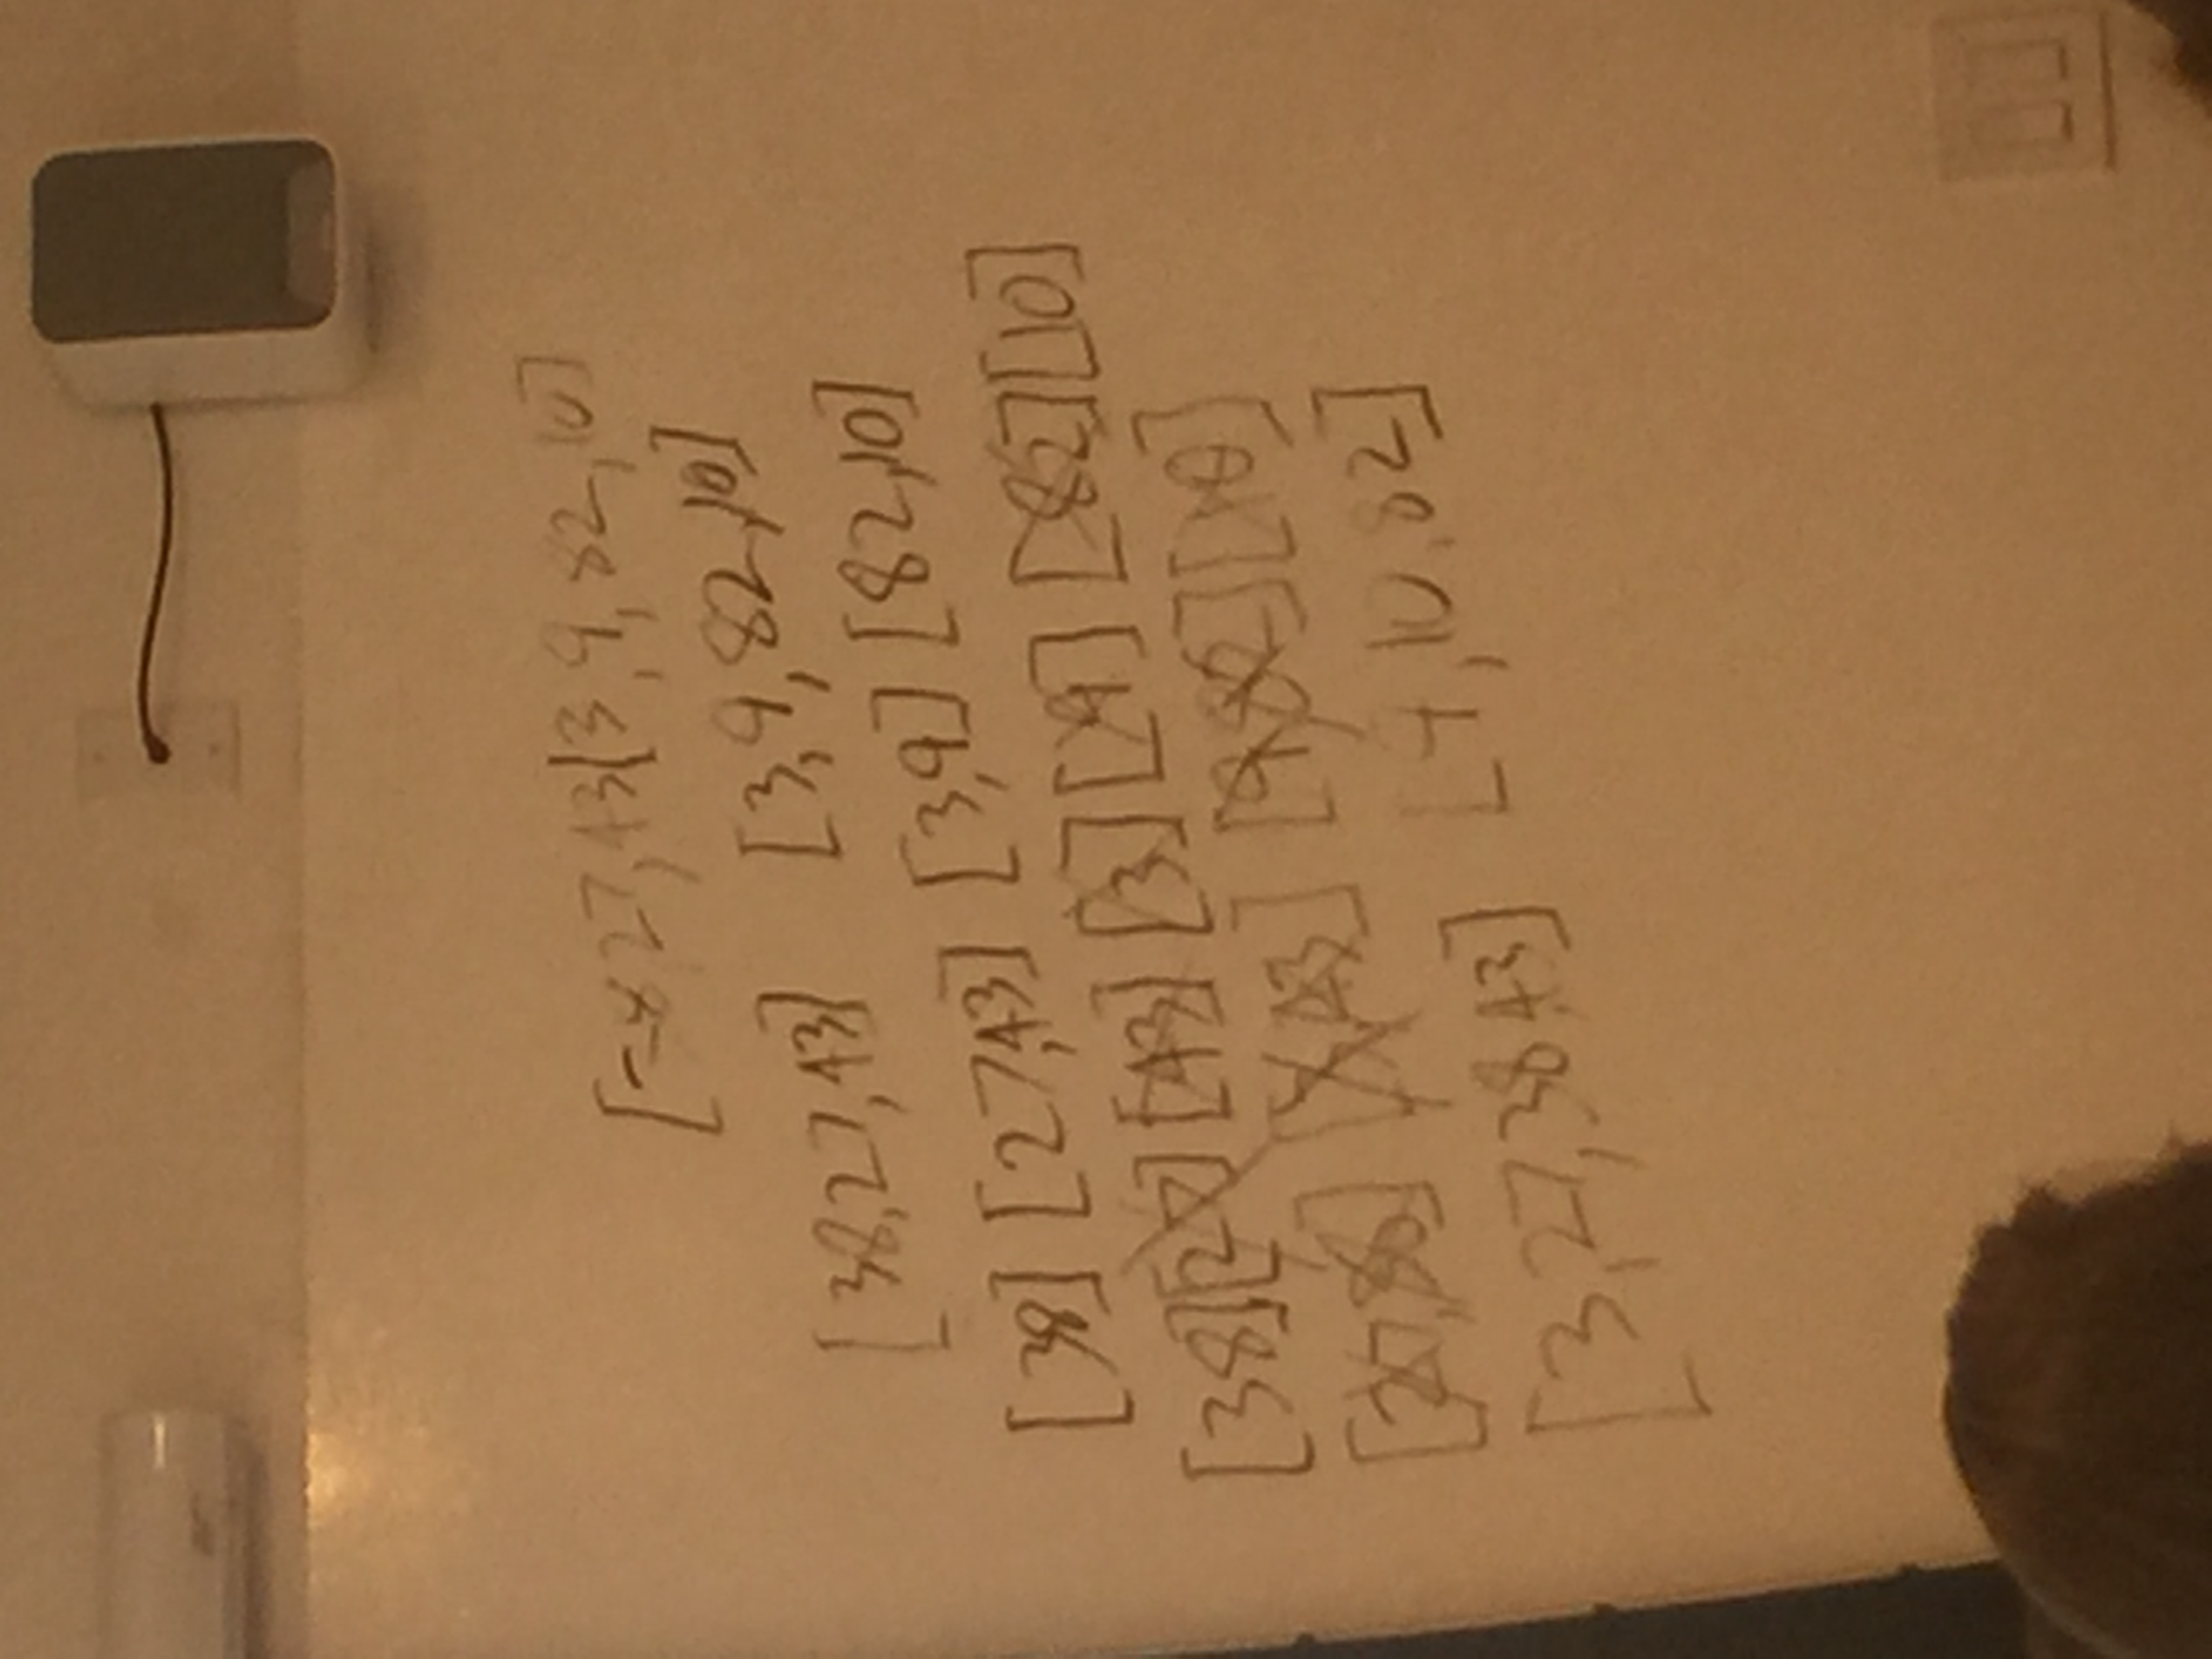 [38,27,43|3,9,82,10]
[38,27,43] [3,9,82,10]
[38] [27,43] [3,9] [82,10]
[38][27] [43] [3] [9] [82][10]
[27,38] [3,43] [9,82][10]
[3,27,38,43] [9,10,82]